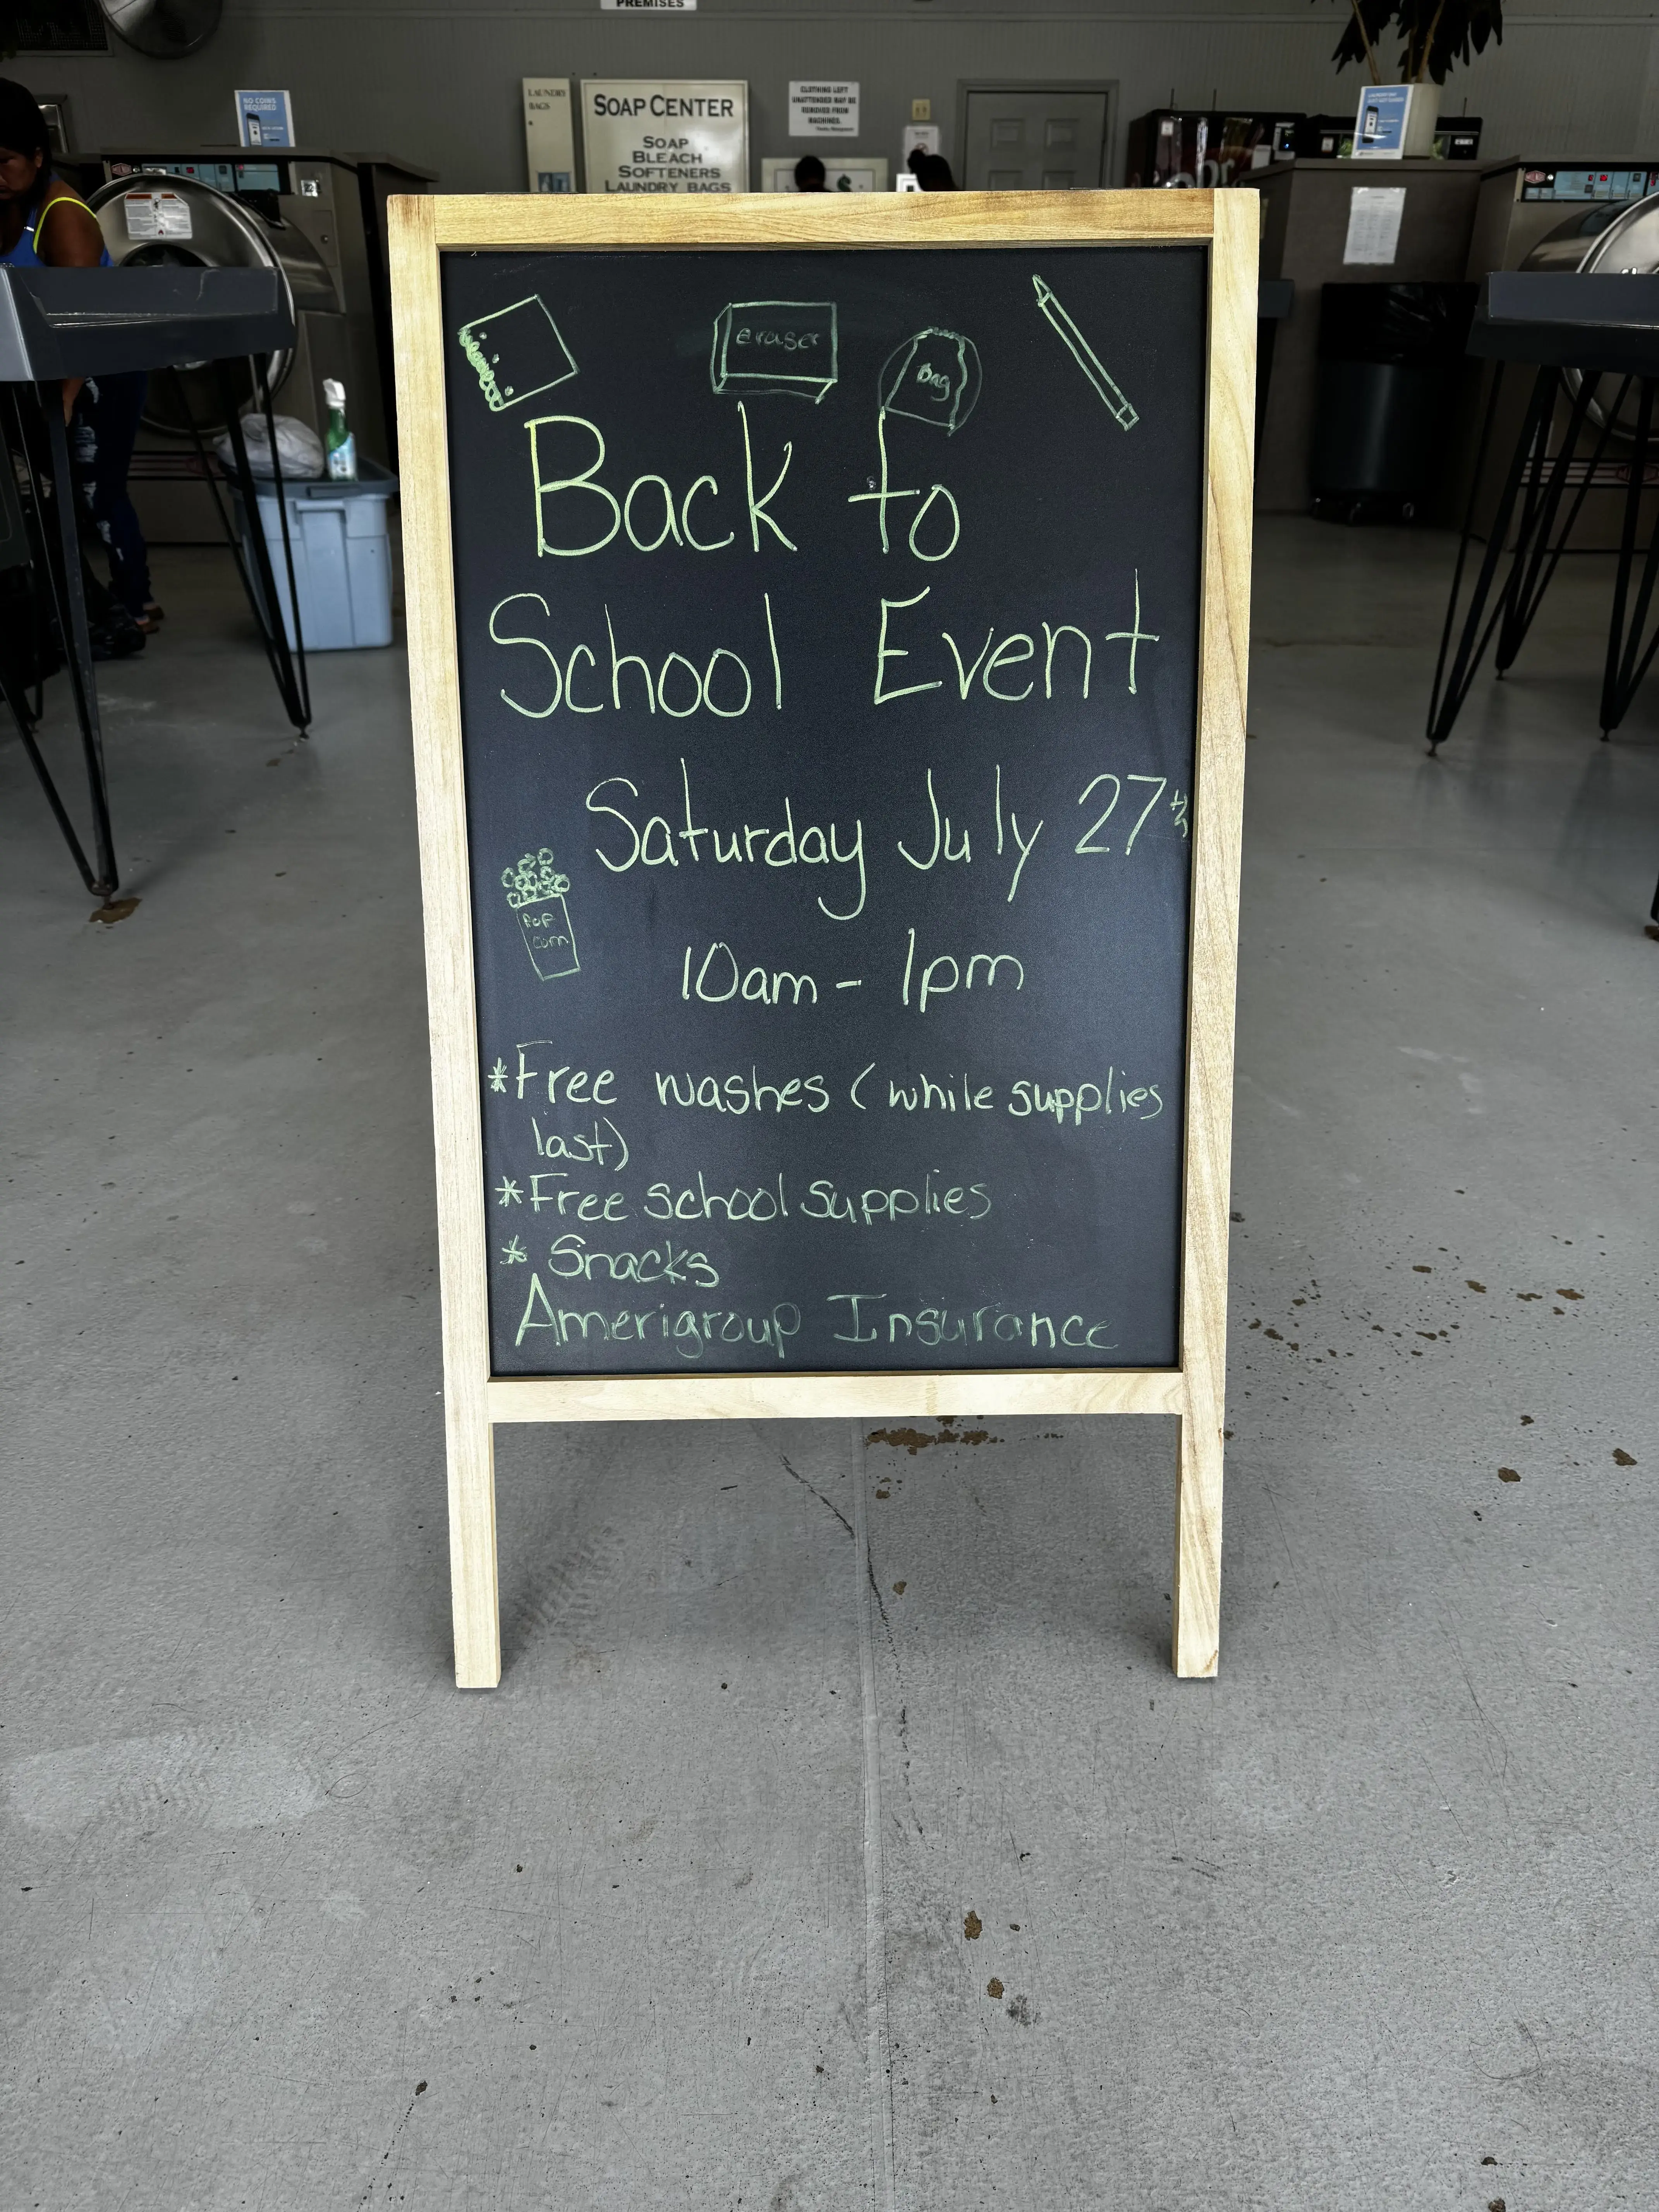 PREMISES
NO COINS
REQUIRED
LAUNDRY
BAGS
SOAP CENTER
SOAP
BLEACH
SOFTENERS
LAUNDRY BAGS
CLOTHING LEFT
UNATTENDED MAY BE
REMOVED FROM
MACHINES.
eraser
Bag
Back to
School Event
Saturday July 27th
POP
corn
10am - 1pm
*Free washes (while supplies
last)
*Free school supplies
* Snacks
Amerigroup Insurance